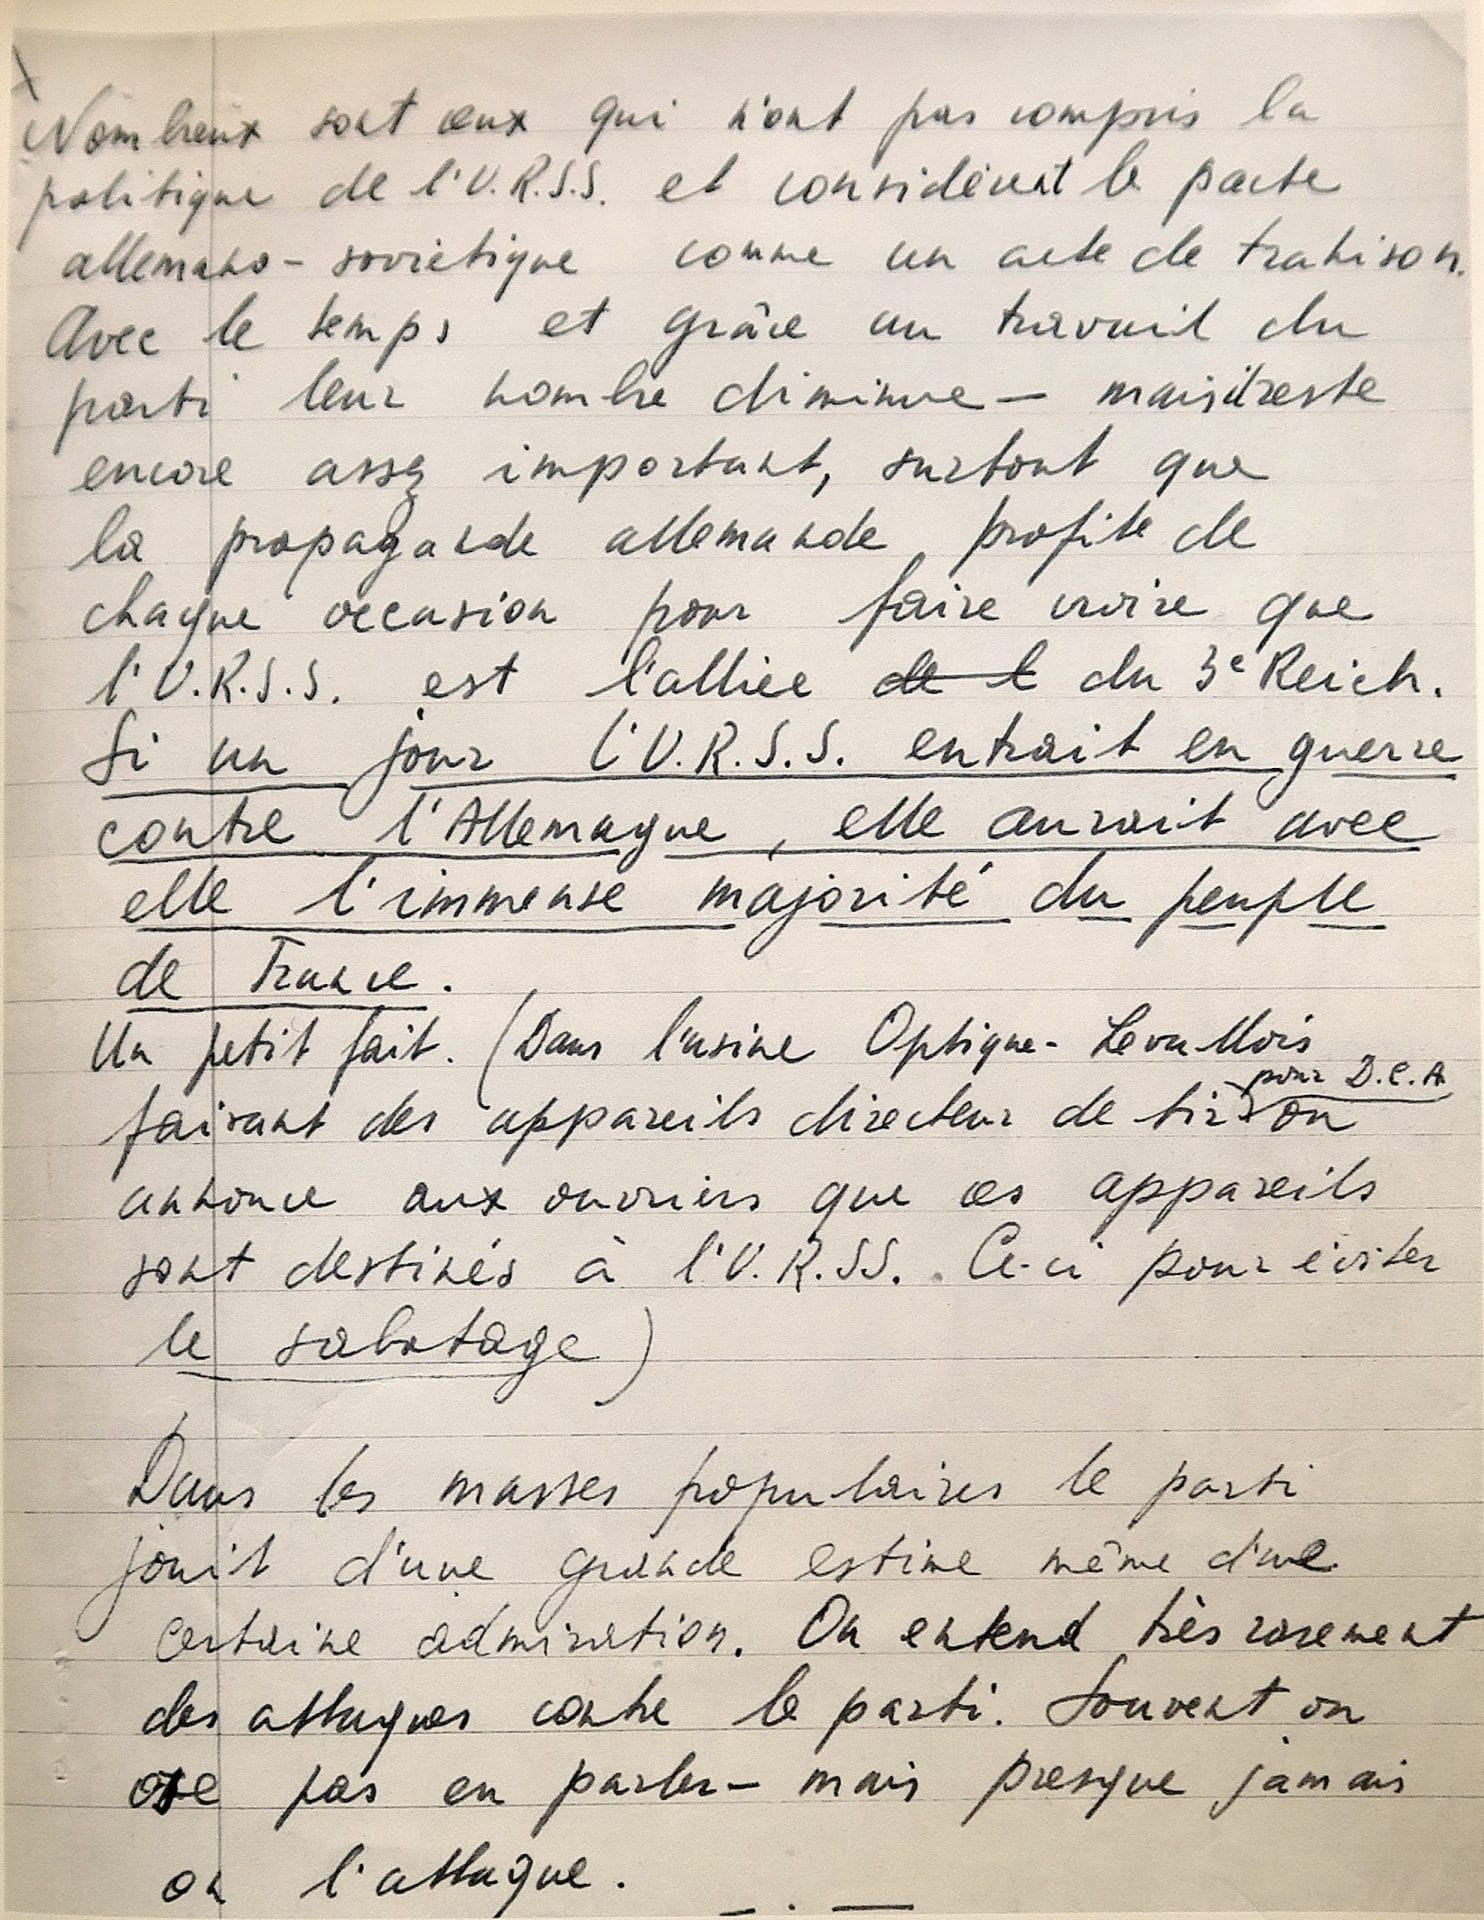 Nombreux sont ceux qui n'ont pas compris la
politique de l'U.R.S.S. et considèrent le pacte
allemano-soviétique comme un acte de trahison.
Avec le temps et grâce au travail du
parti leur nombre diminue — mais il reste
encore assez important, surtout que
la propagande allemande profite de
chaque occasion pour faire croire que
l'U.R.S.S. est l'alliée de l du 3e Reich.
Si un jour l'U.R.S.S. entrait en guerre
contre l'Allemagne, elle aurait avec
elle l'immense majorité du peuple
de France.
Un petit fait. (Dans l'usine Optique-Levallois
pour D.C.A
faisant des appareils directeur de tir on
annonce aux ouvriers que ces appareils
sont destinés à l'U.R.SS. Ce-ci pour éviter
le sabotage)
Dans les masses populaires le parti
jouit d'une grande estime même d'une
certaine admiration. On entend très rarement
des attaques contre le parti. Souvent on
ose pas en parler — mais presque jamais
on l'attaque.
— . —